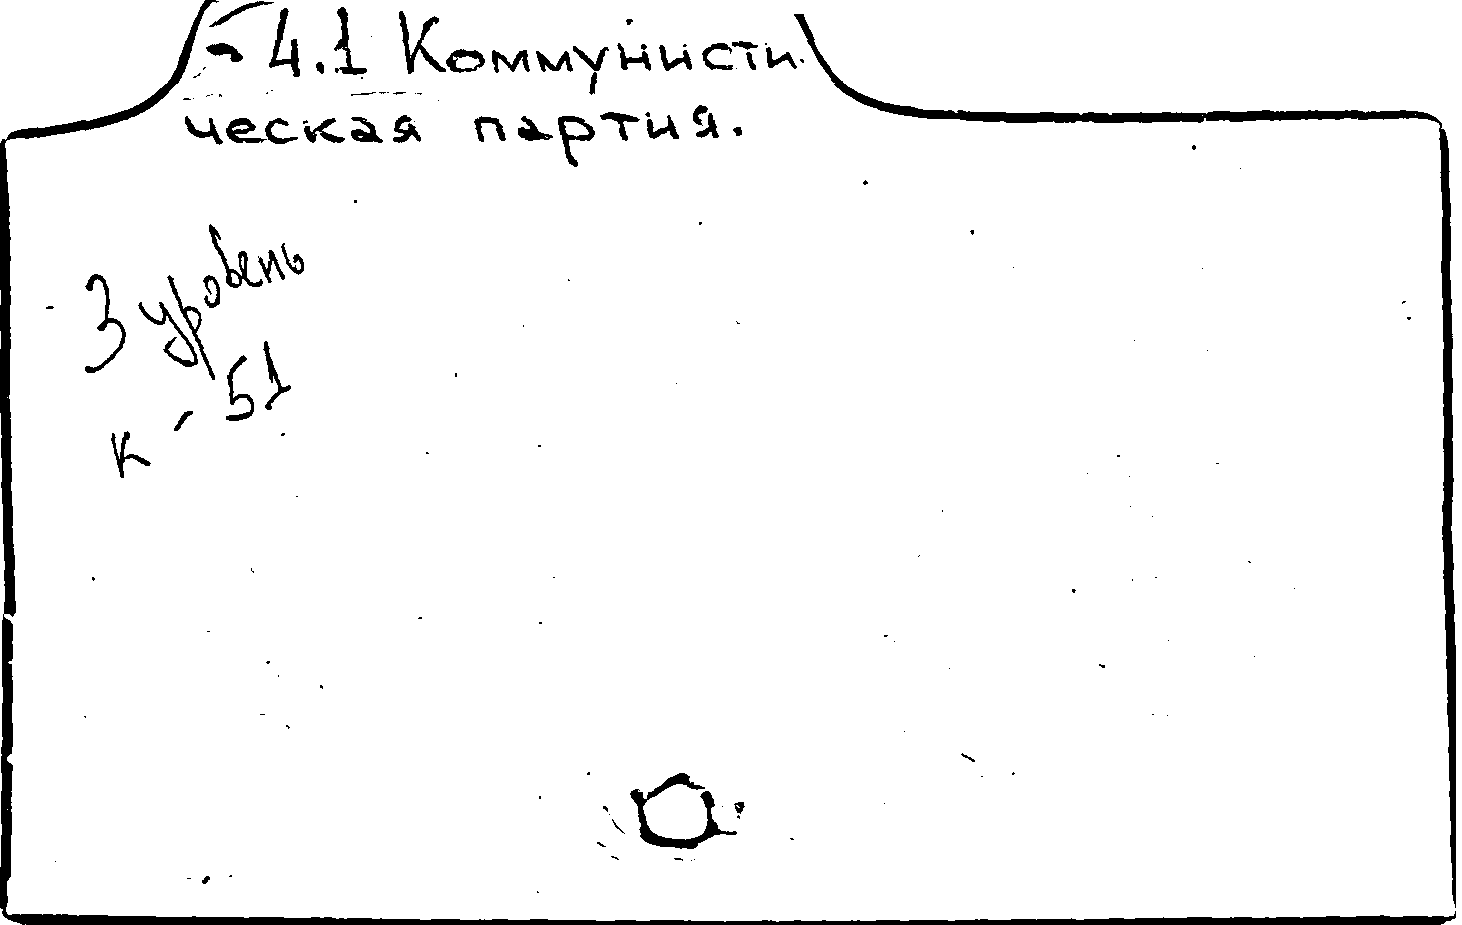 - 4.1 Коммунисти-
ческая партия.
3 уровень
к - 51